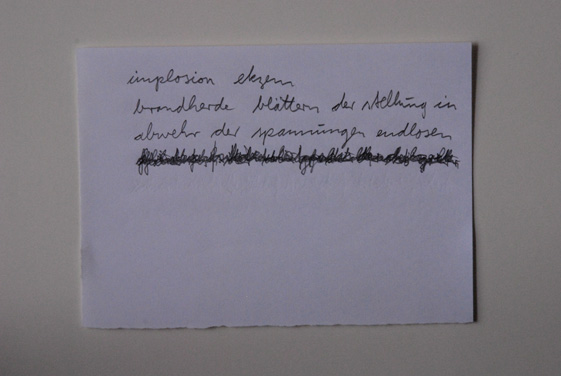 implosion ekzem
brandherde blättern der stellung in
abwehr der spannungen endlosen